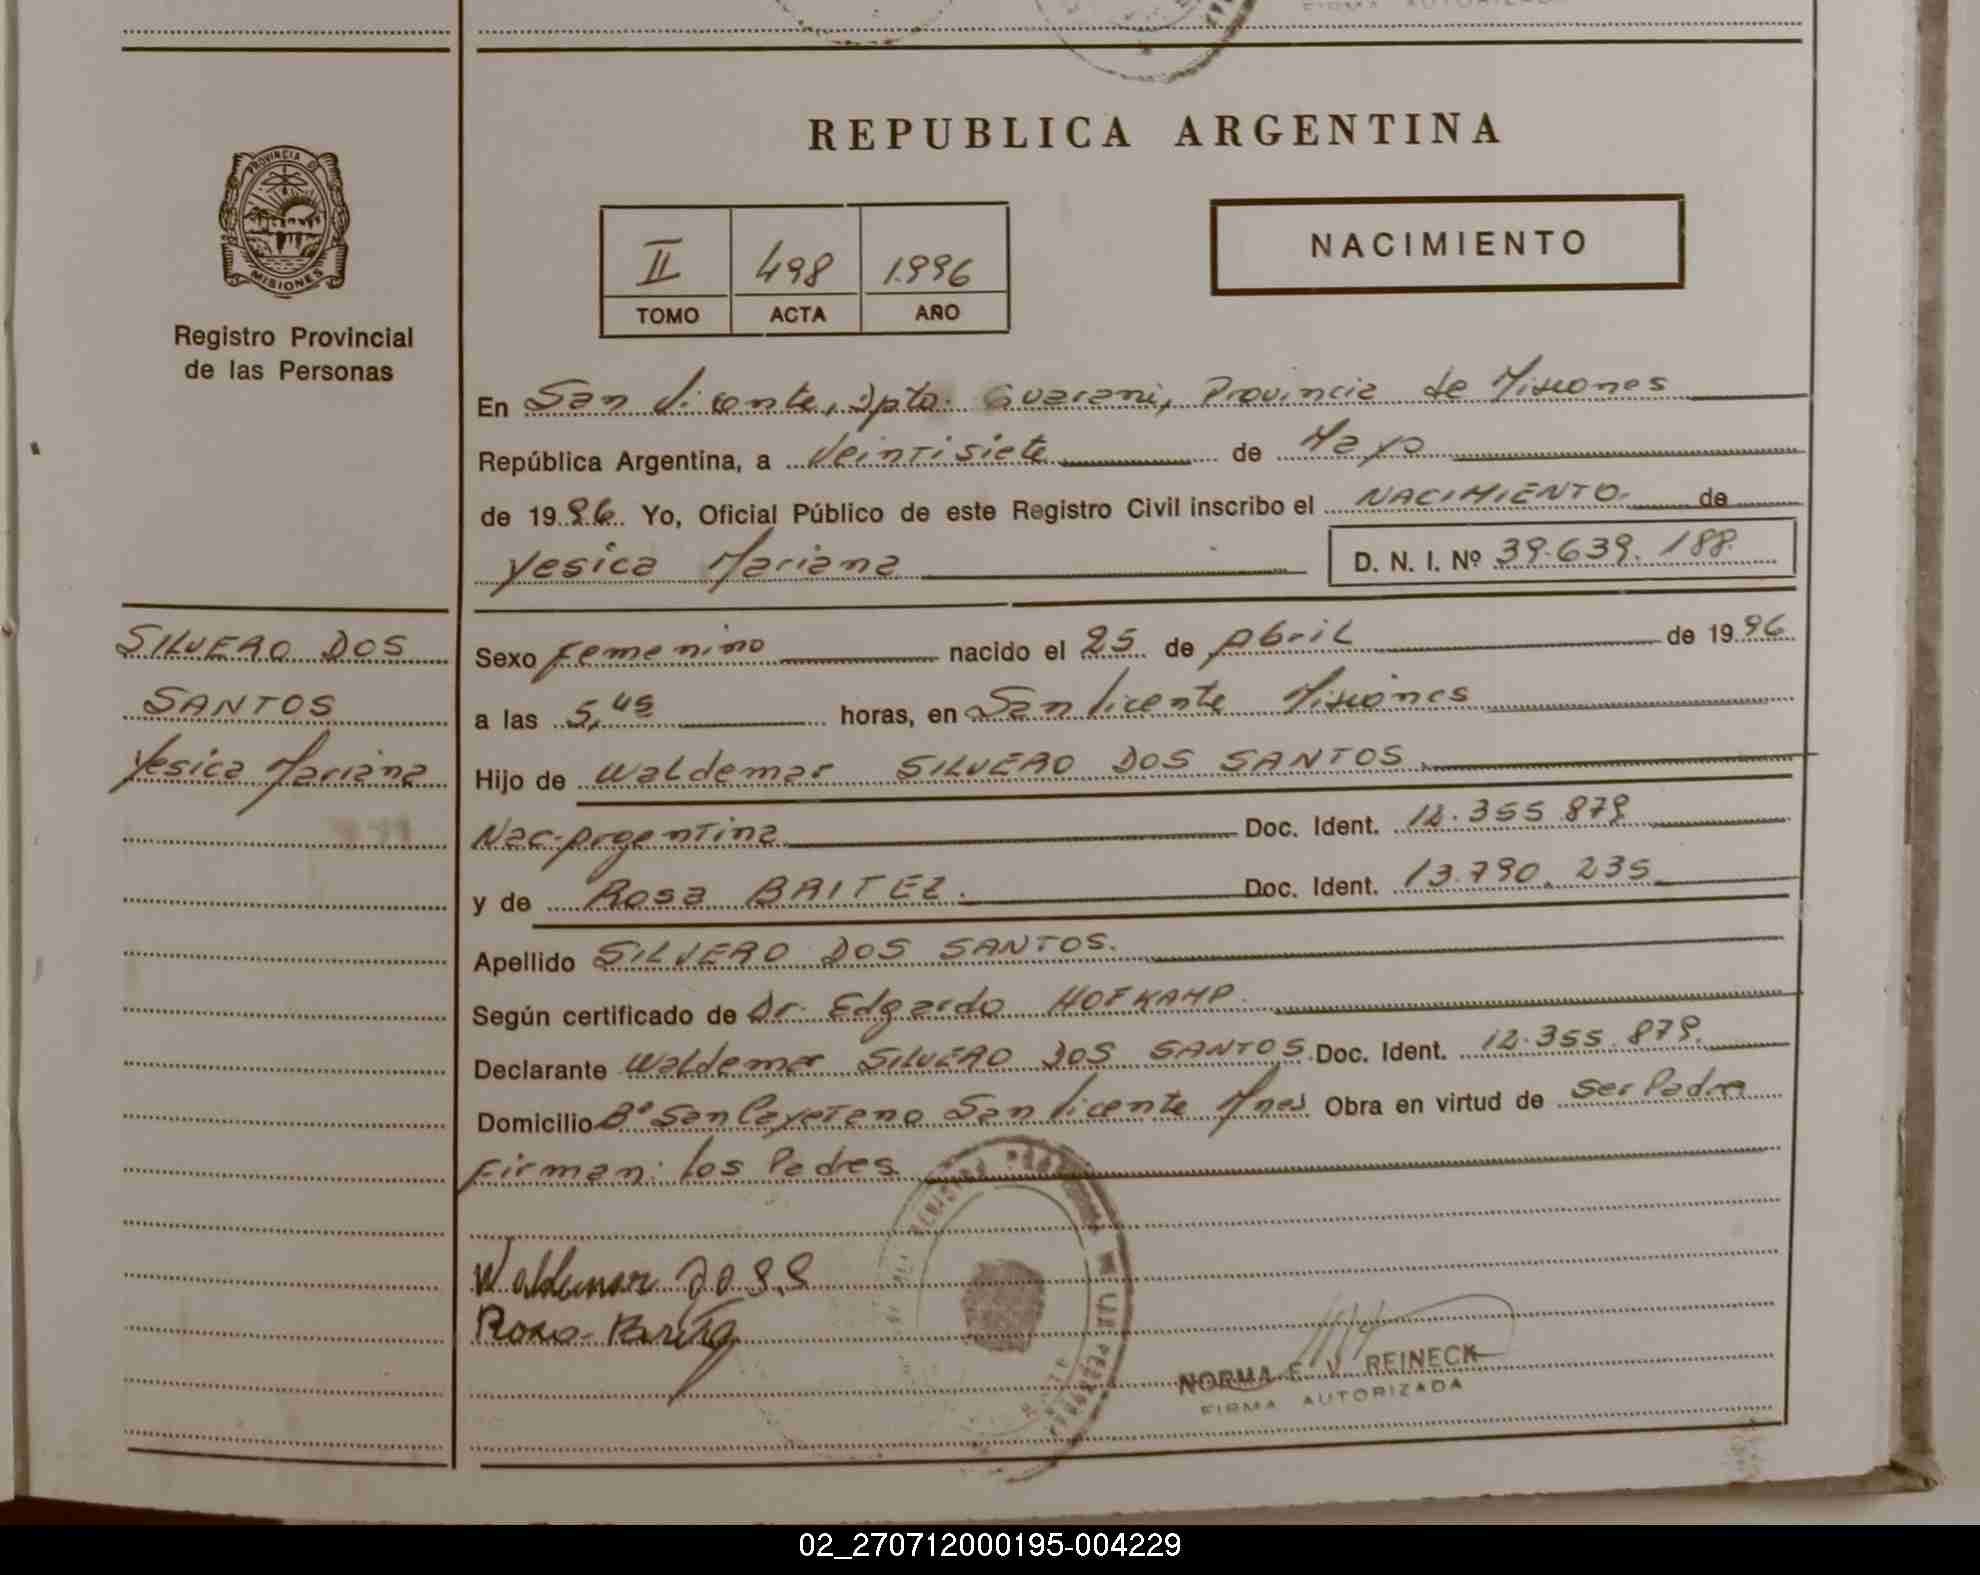 FIRMA AUTORIZADA
PROVINCIA DE
MISIONES
Registro Provincial
de las Personas
REPUBLICA ARGENTINA
II 498 1.996
TOMO ACTA AÑO
NACIMIENTO
En San Vicente, Dpto. Guarani, Provincia de Misiones
República Argentina, a Veintisiete de Mayo
de 1996. Yo, Oficial Público de este Registro Civil inscribo el NACIMIENTO. de
Yesica Mariana D. N. I. Nº 39.639.188
SILVERO DOS
SANTOS
Yesica Mariana
Sexo Femenino nacido el 25 de Abril de 1996
a las 5,45 horas, en San Vicente Misiones
Hijo de Waldemar SILVERO DOS SANTOS.
Nac. Argentina Doc. Ident. 12.355.879
y de Rosa BRITEZ. Doc. Ident. 13.790.235
Apellido SILVERO DOS SANTOS.
Según certificado de Dr. Edgardo HOFKAMP.
Declarante Waldemar SILVERO DOS SANTOS. Doc. Ident. 12.355.879.
Domicilio Bº San Cayetano San Vicente Mnes Obra en virtud de ser Padre
Firman: los Padres
Waldemar
Rosa
NORMA E. V. REINECK
FIRMA AUTORIZADA
02_270712000195-004229